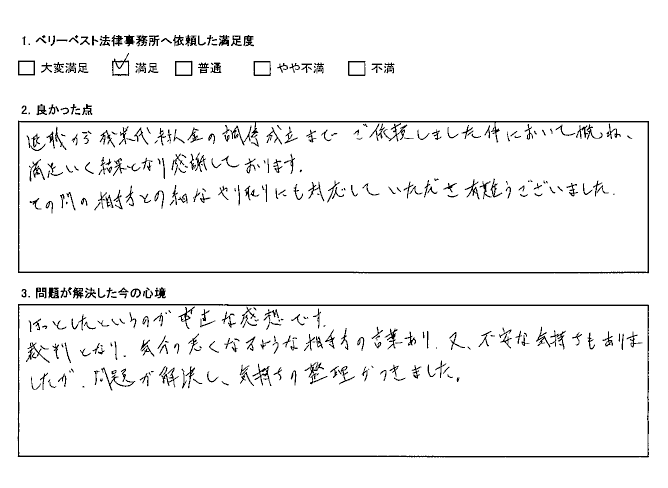 1. ベリーベスト法律事務所へ依頼した満足度
大変満足 満足 普通 やや不満 不満
2. 良かった点
退職から残業代未払金の調停成立まで ご依頼しました件において概ね、
満足いく結果となり感謝しております。
その間の相手方との細なやり取りにも対応していただき有難うございました。
3. 問題が解決した今の心境
ほっとしたというのが率直な感想です。
裁判となり、気分の悪くなるような相手方の言葉あり、又、不安な気持ちもありま
したが、問題が解決し、気持ちの整理がつきました。